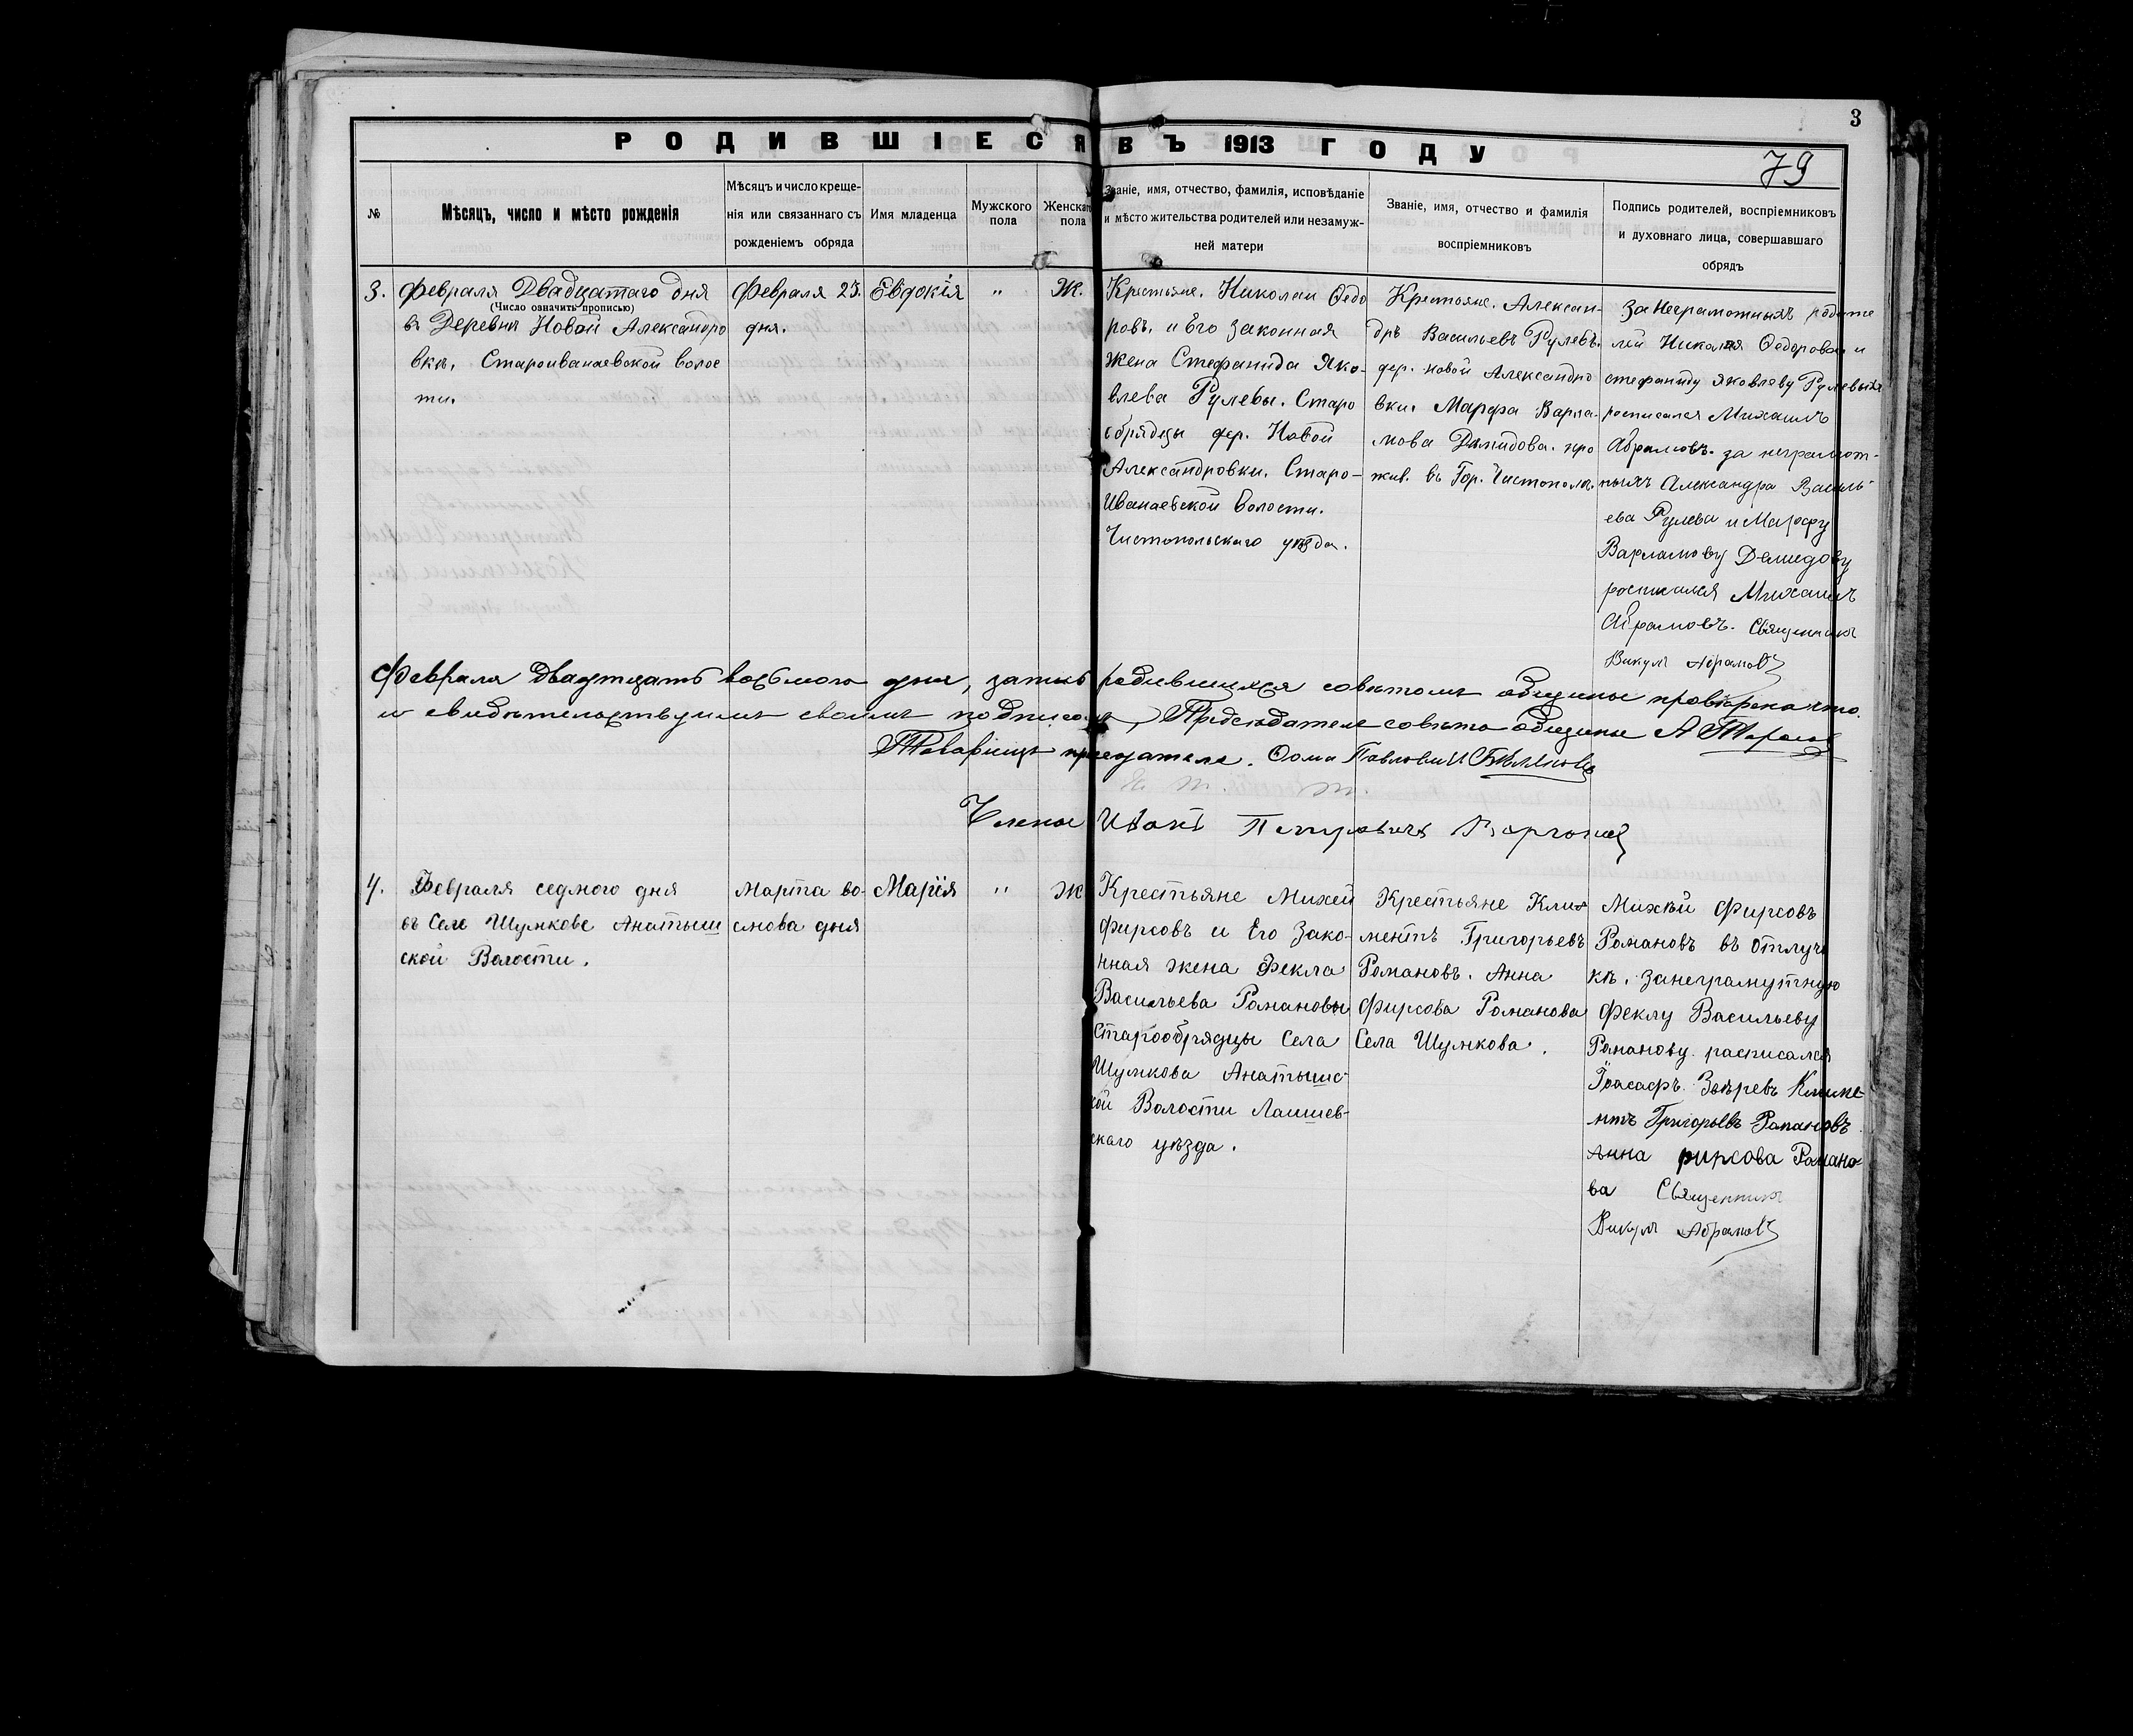 3
РОДИВШІЕСЯ ВЪ 1913 ГОДУ
79
№
Мѣсяцъ, число и мѣсто рожденія
Мѣсяцъ и число креще-
нія или связаннаго съ
рожденіемъ обряда
Имя младенца
Мужского
пола
Женскаго
пола
Званіе, имя, отчество, фамилія, исповѣданіе
и мѣсто жительства родителей или незамуж-
ней матери
Званіе, имя, отчество и фамилія
воспріемниковъ
Подпись родителей, воспріемниковъ
и духовнаго лица, совершавшаго
обрядъ
3.
Февраля Двадцатаго дня
(Число означить прописью)
въ Деревни Новой Александро
вкѣ. Староиванаевской волос
ти.
Февраля 23.
дня.
Евдокія
"
Ж.
Крестьяне. Николай Ѳедо
ровъ. и Его законная
Жена Стефанида Яко-
влева Рулевы. Старо
обрядцы дер. Новой
Александровки. Старо-
Иванаевской волости.
Чистопольскаго уѣзда.
Крестьяне. Алексан-
дръ Васильевъ Рулевъ.
дер. Новой Александро
вки. Марфа Варла-
мова Демидова. про
жив. въ Гор. Чистополѣ.
За Неграмотныхъ родите
лей Николая Ѳедорова и
стефаниду Яковлеву Рулевыхъ
росписался Михаилъ
Абрамовъ. за неграмот-
ныхъ Александра Василь-
ева Рулева и Марфу
Варламову Демидову
росписался Михаилъ
Абрамовъ. Священникъ
Викулъ Абрамовъ
Февраля двадтцать восьмого дня, запись родившихся совѣтомъ общины провѣрена что
и свидѣтельствуимъ своимъ подписомъ, Предсѣдатель совѣта общины А Тарасов
Товарищъ предателя. Ѳома Павлович Бѣляковъ
Члены Иванъ Петровичъ
4.
Февраля седмого дня
въ Селе Шумкове Анатыш
ской Волости.
Марта во-
смова дня
Марія
"
Ж
Крестьяне Михей
Фирсовъ и Его Зако-
нная жена Фекла
Васильева Романовы
Старообрядцы Села
Шумкова Анатышс-
кой Волости Лаишев-
скаго уѣзда.
Крестьяне Кли
ментъ Григорьевъ
Романовъ. Анна
Фирсова Романова
Села Шумкова.
Михѣй Фирсовъ
Романовъ въ отлуч
кѣ. Занеграмутную
Феклу Васильеву
Романову расписался
Іоасафъ Звѣревъ Климе-
нтъ Григорьевъ Романовъ
Анна фирсова Романо-
ва Священникъ
Викулъ Абрамовъ